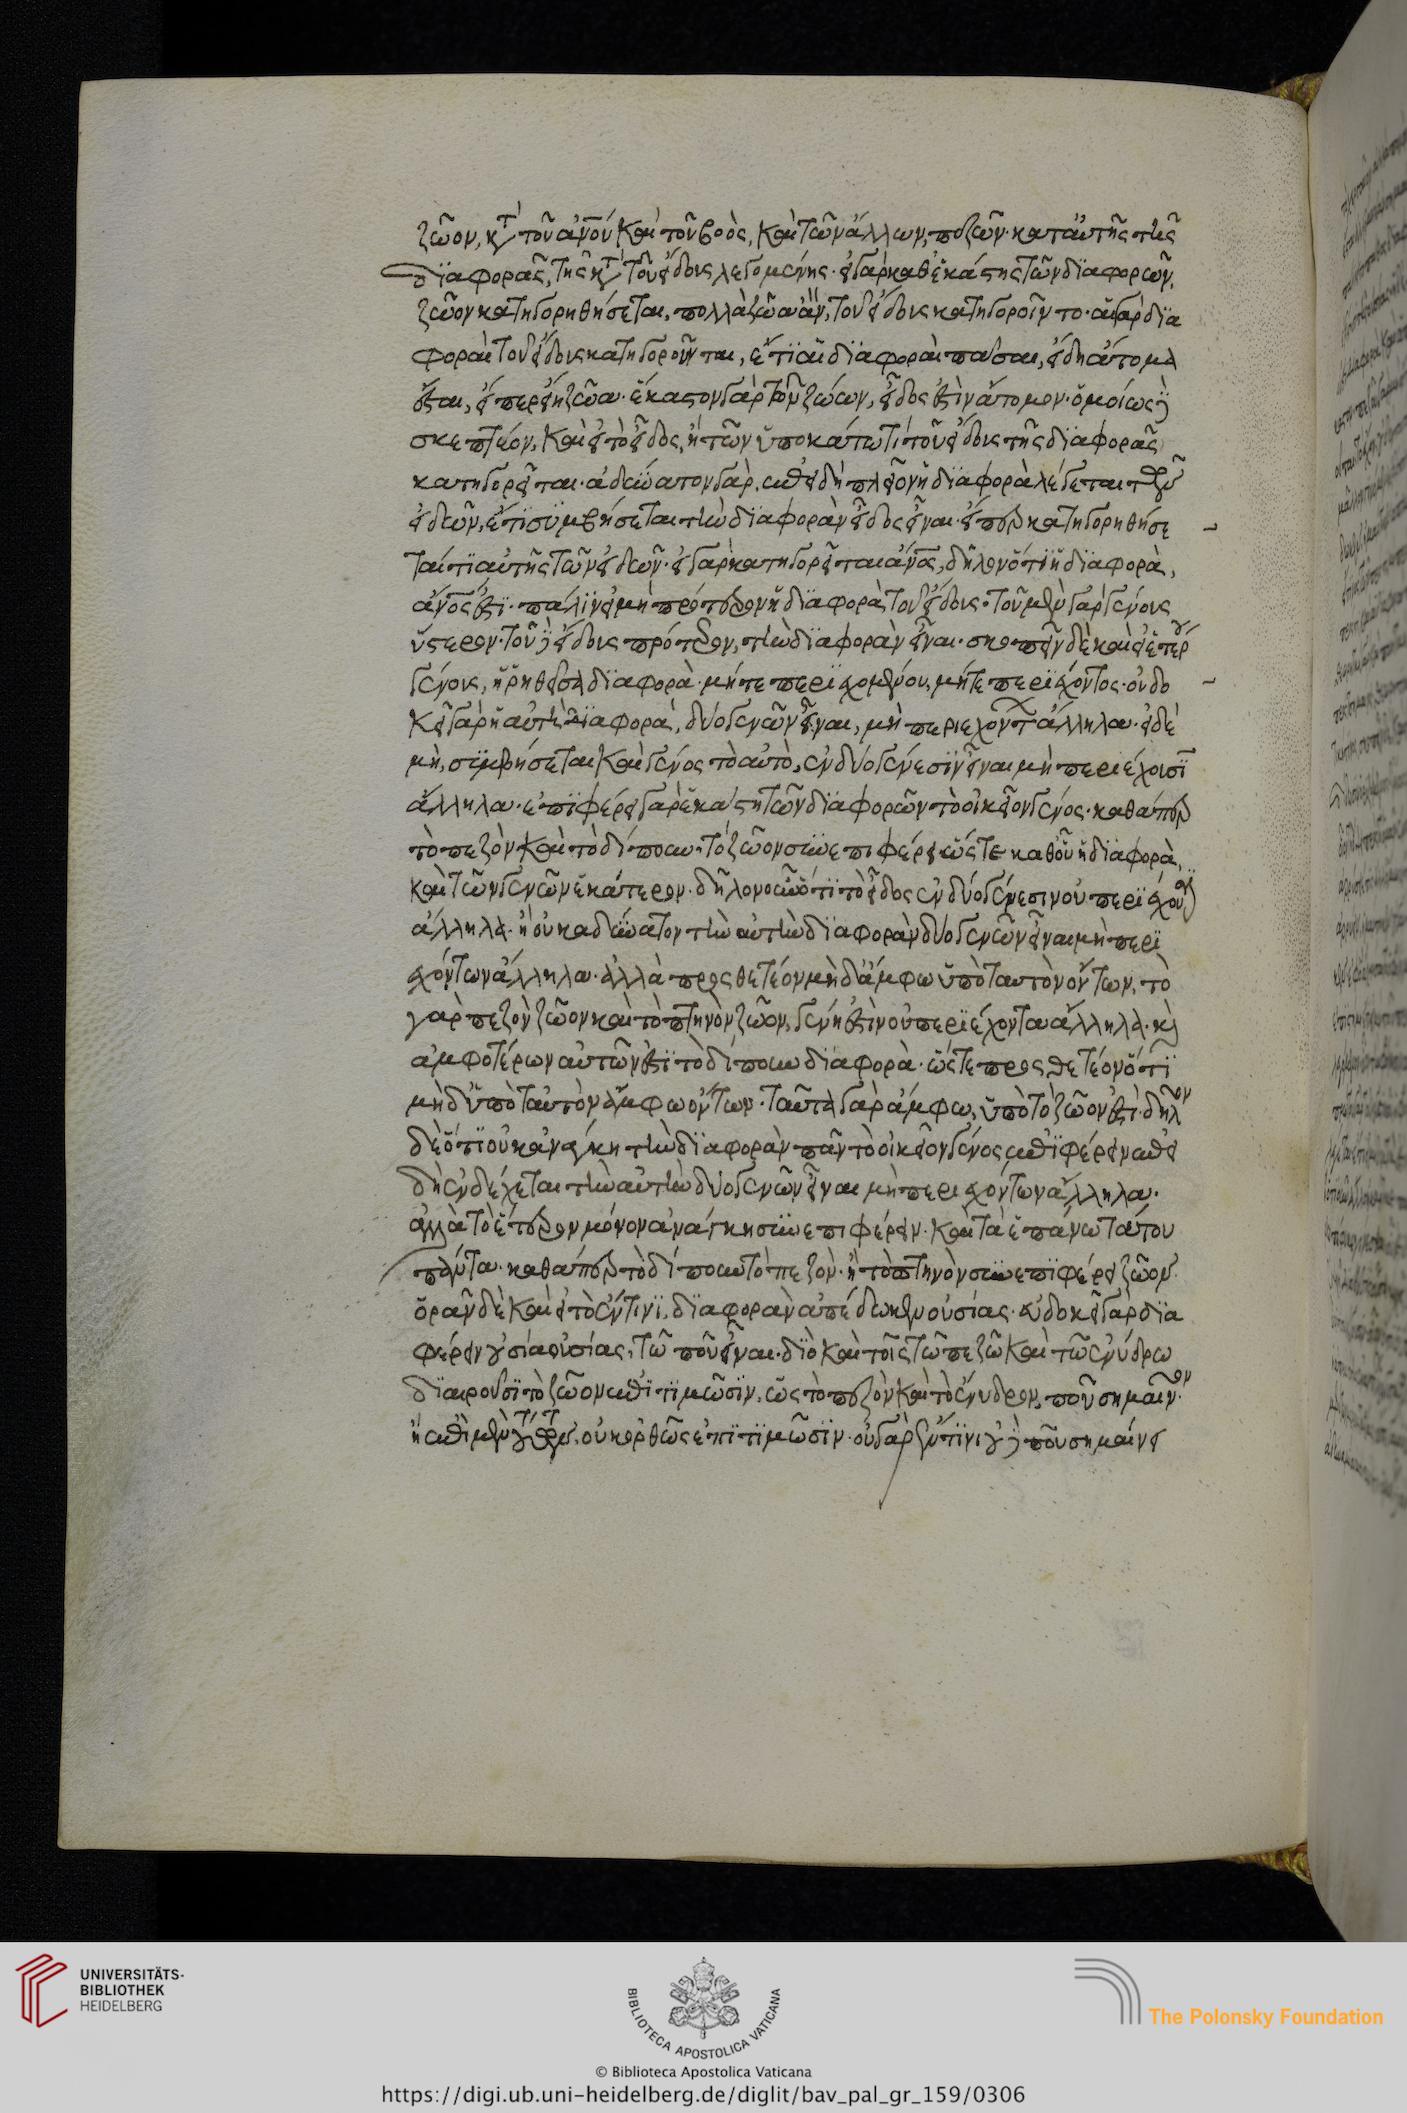 ζῶον, κτ̀ τοῦ ἀνου καὶ τοῦ βοὸς, καὶ τῶν ἄλλων πεζῶν· κατ αὐτῆς τῆς
διαφορᾶς, τῆς κτ̀ τοῦ εἴδους λεγομένης· εἰ γὰρ καθ ἑκάστης τῶν διαφορῶν,
ζῶον κατηγορηθήσεται, πολλὰ ζῶα ἂν, τοῦ εἴδους κατηγοροῖντο· αἱ γὰρ δια
φοραὶ τοῦ εἴδους κατηγοροῦνται, ἔτι αἱ διαφοραὶ πᾶσαι, εἴδη ἄτομα
ἔσται, εἴπερ εἴη ζῶα· ἕκαστον γὰρ τῶν ζώων, εἶδος ἐστὶν ἄτομον· ὁμοίως δὲ
σκεπτέον, καὶ εἰ τὸ εἶδος, ἢ τῶν ὑποκάτω τι τοῦ εἴδους τῆς διαφορᾶς
κατηγορεῖται· ἀδύνατον γὰρ, ἐπειδὴ πλεῖον ἡ διαφορὰ λέγεται τῶν
εἰδῶν, ἔτι συμβήσεται τὴν διαφορὰν εἶδος εἶναι· εἴπερ κατηγορηθήσε
ταί τι αὐτῆς τῶν εἰδῶν· εἰ γὰρ κατηγορεῖται ἄνος, δῆλον ὅτι ἡ διαφορὰ,
ἄνος ἐστι· πάλιν εἰ μὴ πρότερον ἡ διαφορὰ τοῦ εἴδους· τοῦ μὲν γὰρ γένους
ὕστερον· τοῦ δὲ εἴδους πρότερον, τὴν διαφορὰν εἶναι· σκοπεῖν δὲ καὶ εἰ ἑτέρ
γένους, ἡ ῥηθεῖσα διαφορὰ· μήτε περιεχομένου, μήτε περιέχοντος· οὐ δο
κεῖ γὰρ ἡ αὐτὴ διαφορὰ, δύο γενῶν εἶναι, μὴ περιεχόντ ἄλληλα· εἰ δὲ
μὴ, συμβήσεται καὶ γένος τὸ αὐτὸ, ἐν δύο γένεσιν εἶναι μὴ περιέχουσι
ἄλληλα· ἐπιφέρει γὰρ ἑκάστη τῶν διαφορῶν τὸ οἰκεῖον γένος· καθάπερ
τὸ πεζὸν καὶ τὸ δίπουν· τὸ ζῶον συνεπιφέρει ὥστε καθ οὗ ἡ διαφορὰ,
καὶ τῶν γενῶν ἑκάτερον· δῆλον οὖν ὅτι τὸ εἶδος ἐν δύο γένεσιν οὐ περιέχουσι
ἄλληλα· ἢ οὐκ ἀδύνατον τὴν αὐτὴν διαφορὰν δύο γενῶν εἶναι μὴ περι
εχόντων ἄλληλα· ἀλλὰ προσθετέον μὴ δ ἄμφω ὑπὸ ταυτὸν ὄντων, τὸ
γὰρ πεζὸν ζῶον καὶ τὸ πτηνὸν ζῶον, γένη ἐστὶν οὐ περιέχοντα ἄλληλα· καὶ
ἀμφοτέρων αὐτῶν ἐστι τὸ δίπουν διαφορὰ· ὥστε προσθετέον ὅτι
μὴ δ ὑπὸ ταὐτὸν ἄμφω ὄντων· ταῦτα γὰρ ἄμφω, ὑπὸ τὸ ζῶον ἐστὶ· δῆλον
δὲ ὅτι οὐκ ἀνάγκη τὴν διαφορὰν πᾶν τὸ οἰκεῖον γένος ἐπιφέρειν ἐπει
δὴ ἐνδέχεται τὴν αὐτὴν δύο γενῶν εἶναι μὴ περιεχόντων ἄλληλα·
ἀλλὰ τὸ ἕτερον μόνον ἀνάγκη συνεπιφέρειν· καὶ τὰ ἐπάνω τούτου
πάντα· καθάπερ τὸ δίπουν τὸ πεζὸν· ἢ τὸ πτηνὸν συνεπιφέρει ζῶον·
ὁρᾶν δὲ καὶ εἰ τὸ ἔν τινι, διαφορὰν ἀπέδωκεν οὐσίας· οὐ δοκεῖ γὰρ δια
φέρειν οὐσία οὐσίας, τῶ ποῦ εἶναι· διὸ καὶ τοῖς τῶ πεζῶ καὶ τῶ ἐνύδρω
διαιροῦσι τὸ ζῶον ἐπιτιμῶσιν, ὡς τὸ πεζὸν καὶ τὸ ἔνυδρον, ποῦ σημαῖνον·
ἢ ἐπὶ μὲν τούτων, οὐκ ὀρθῶς ἐπιτιμῶσιν· οὐ γὰρ ἔν τινι οὐδὲ ποῦ σημαίνει
UNIVERSITÄTS-
BIBLIOTHEK
HEIDELBERG
BIBLIOTECA APOSTOLICA VATICANA
© Biblioteca Apostolica Vaticana
The Polonsky Foundation
https://digi.ub.uni-heidelberg.de/diglit/bav_pal_gr_159/0306